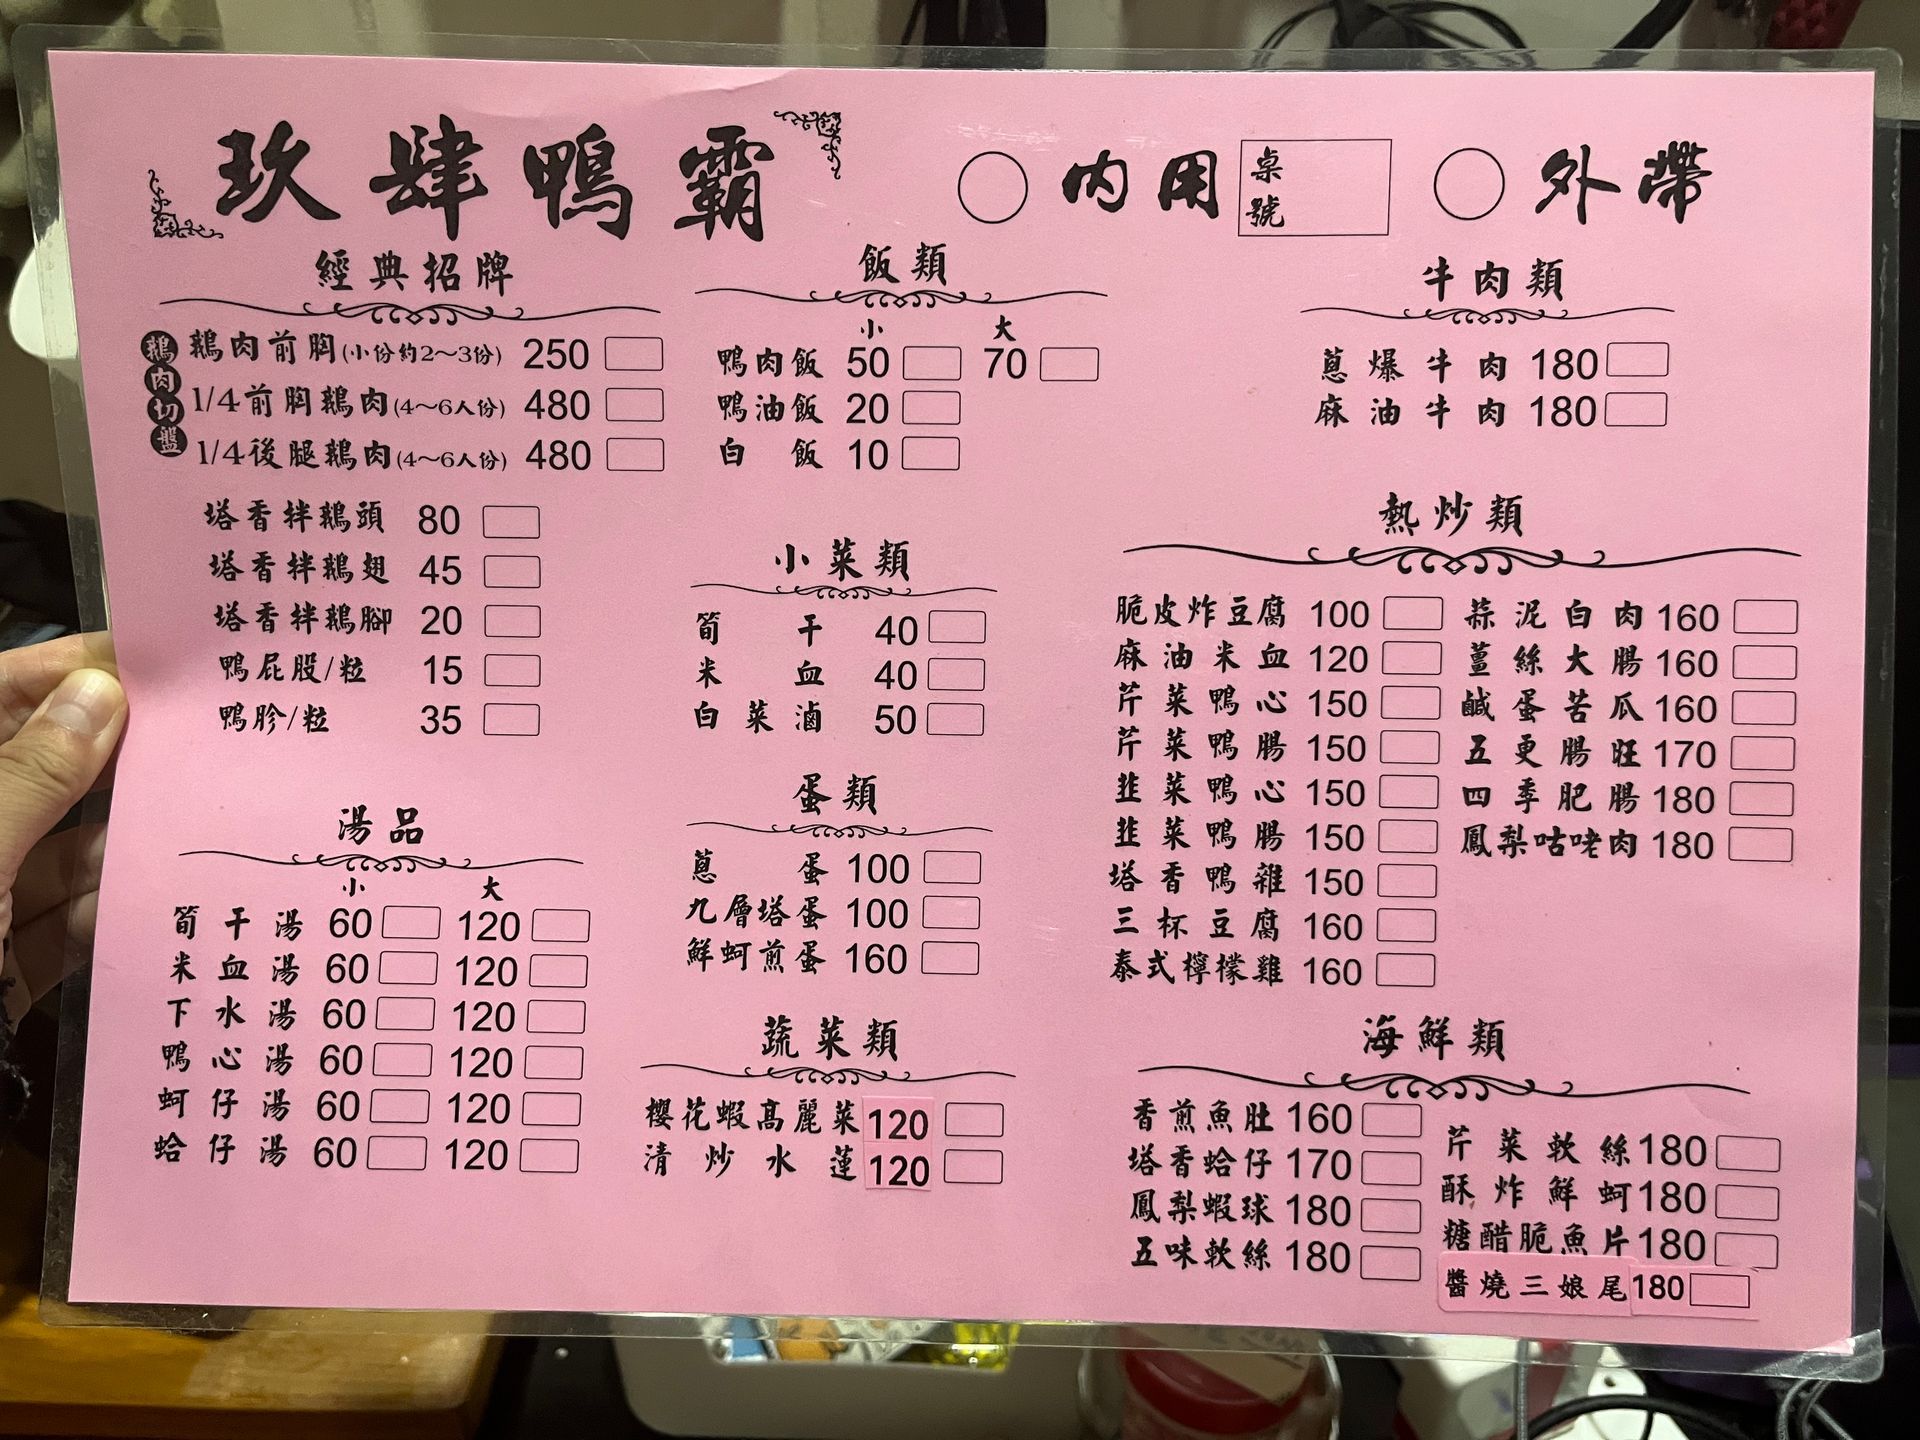 玖肆鴨霸
內用
桌號
外帶
經典招牌
鵝肉切盤
鵝肉前胸(小份約2～3份) 250
1/4前胸鵝肉(4～6人份) 480
1/4後腿鵝肉(4～6人份) 480
塔香拌鵝頭 80
塔香拌鵝翅 45
塔香拌鵝腳 20
鴨屁股/粒 15
鴨胗/粒 35
湯品
小 大
筍干湯 60 120
米血湯 60 120
下水湯 60 120
鴨心湯 60 120
蚵仔湯 60 120
蛤仔湯 60 120
飯類
小 大
鴨肉飯 50 70
鴨油飯 20
白飯 10
小菜類
筍干 40
米血 40
白菜滷 50
蛋類
蔥蛋 100
九層塔蛋 100
鮮蚵煎蛋 160
蔬菜類
櫻花蝦高麗菜 120
清炒水蓮 120
牛肉類
蔥爆牛肉 180
麻油牛肉 180
熱炒類
脆皮炸豆腐 100
麻油米血 120
芹菜鴨心 150
芹菜鴨腸 150
韭菜鴨心 150
韭菜鴨腸 150
塔香鴨雜 150
三杯豆腐 160
泰式檸檬雞 160
蒜泥白肉 160
薑絲大腸 160
鹹蛋苦瓜 160
五更腸旺 170
四季肥腸 180
鳳梨咕咾肉 180
海鮮類
香煎魚肚 160
塔香蛤仔 170
鳳梨蝦球 180
五味軟絲 180
芹菜軟絲 180
酥炸鮮蚵 180
糖醋脆魚片 180
醬燒三娘尾 180